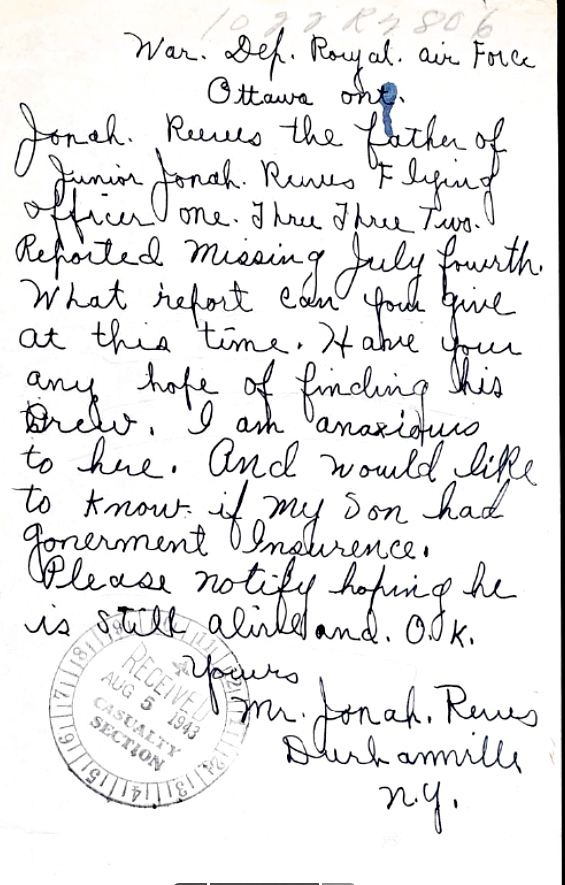 1022 R 2806
War. Dep. Royal. air Force
Ottawa ont.
Jonah. Reeves the father of
Junior Jonah. Reeves Flying
officer one. Three Three Two.
Reported Missing July fourth.
What report can you give
at this time. Have your
any hope of finding his
Crew. I am anaxious
to here. And would like
to know if my Son had
Goverment Insurence.
Please notify hoping he
is still alive and. O.K.
Yours
Mr. Jonah. Reeves
Durhamville
N.Y.
RECEIVED
AUG 5 1943
CASUALTY
SECTION